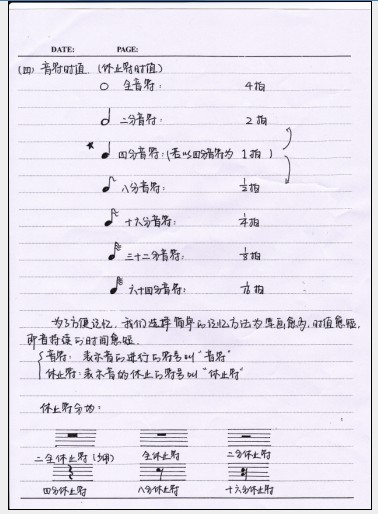 DATE: PAGE:
(四) 音符时值. (休止符时值)
全音符: 4拍
二分音符: 2拍
* 四分音符: (若以四分音符为 1拍 )
八分音符: 1/2拍
十六分音符: 1/4拍
三十二分音符: 1/8拍
六十四分音符: 1/16拍
为了方便记忆, 我们选择简单的记忆方法为: 尾画愈多, 时值愈短,
即音持续的时间愈短.
音符: 表示音的进行的符号叫"音符"
休止符: 表示音的休止的符号叫"休止符"
休止符分为:
二全休止符 全休止符 二分休止符
四分休止符 八分休止符 十六分休止符